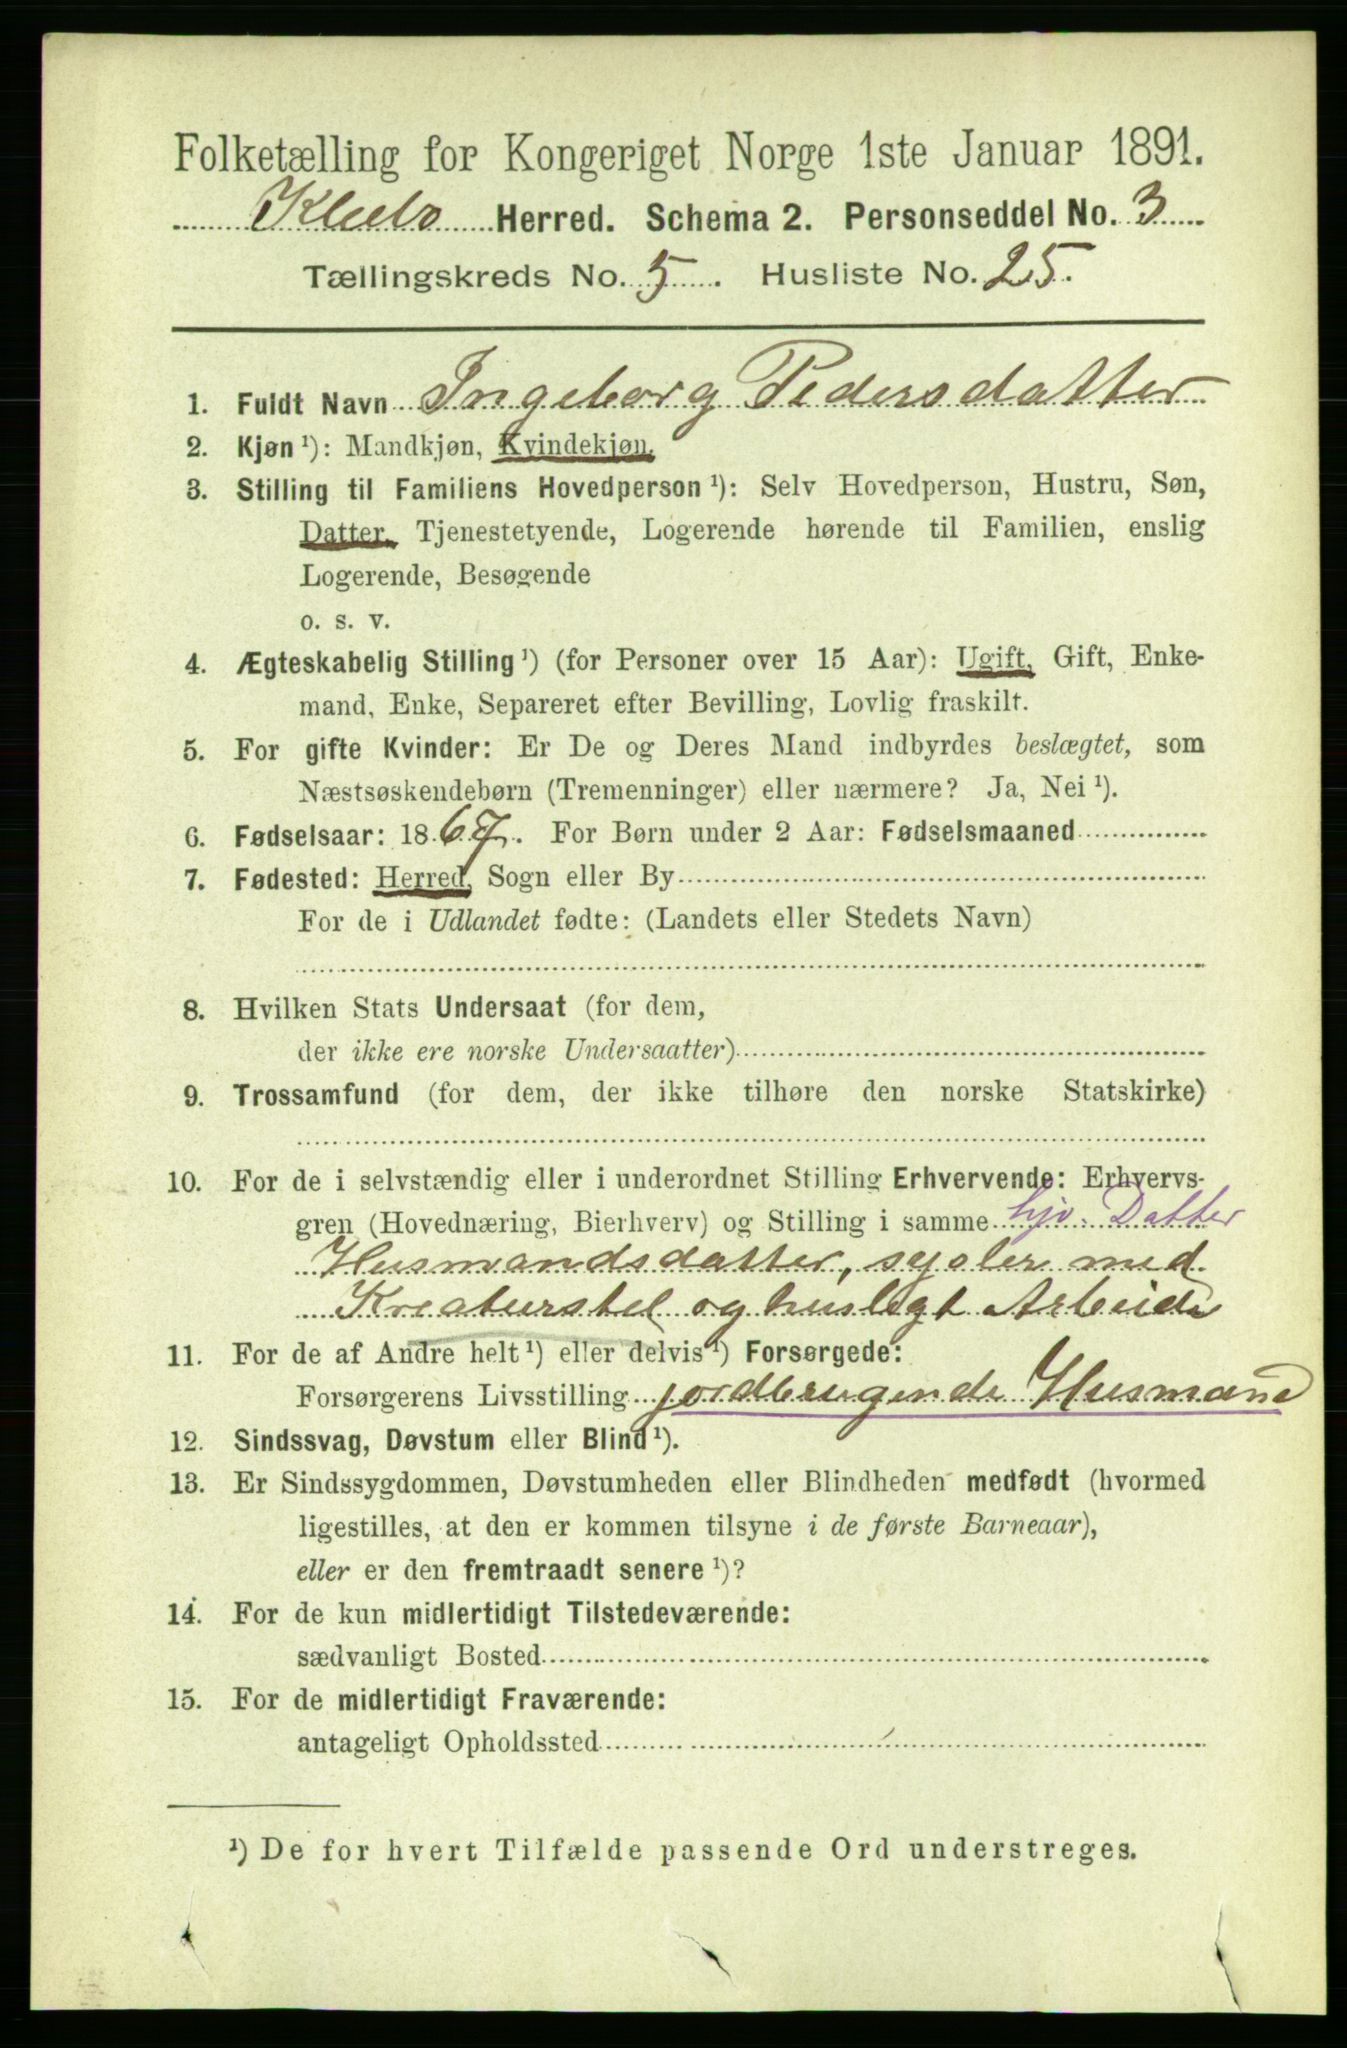 Folketælling for Kongeriget Norge 1ste Januar 1891.
Klebo Herred. Schema 2. Personseddel No. 3
Tællingskreds No. 5. Husliste No. 25.
1. Fuldt Navn Ingeborg Pedersdatter
2. Kjøn ¹): Mandkjøn, Kvindekjøn.
3. Stilling til Familiens Hovedperson ¹): Selv Hovedperson, Hustru, Søn,
Datter, Tjenestetyende, Logerende hørende til Familien, enslig
Logerende, Besøgende
o. s. v.
4. Ægteskabelig Stilling ¹) (for Personer over 15 Aar): Ugift, Gift, Enke-
mand, Enke, Separeret efter Bevilling, Lovlig fraskilt.
5. For gifte Kvinder: Er De og Deres Mand indbyrdes beslægtet, som
Næstsøskendebørn (Tremenninger) eller nærmere? Ja, Nei ¹).
6. Fødselsaar: 1867. For Børn under 2 Aar: Fødselsmaaned
7. Fødested: Herred, Sogn eller By
For de i Udlandet fødte: (Landets eller Stedets Navn)
8. Hvilken Stats Undersaat (for dem,
der ikke ere norske Undersaatter)
9. Trossamfund (for dem, der ikke tilhøre den norske Statskirke)
10. For de i selvstændig eller i underordnet Stilling Erhvervende: Erhvervs-
gren (Hovednæring, Bierhverv) og Stilling i samme hjv. Datter
Husmandsdatter, sysler med
Kreaturstel og huslegt Arbeide
11. For de af Andre helt ¹) eller delvis ¹) Forsørgede:
Forsørgerens Livsstilling jordbrugende Husmand
12. Sindssvag, Døvstum eller Blind ¹).
13. Er Sindssygdommen, Døvstumheden eller Blindheden medfødt (hvormed
ligestilles, at den er kommen tilsyne i de første Barneaar),
eller er den fremtraadt senere ¹)?
14. For de kun midlertidigt Tilstedeværende:
sædvanligt Bosted
15. For de midlertidigt Fraværende:
antageligt Opholdssted
¹) De for hvert Tilfælde passende Ord understreges.